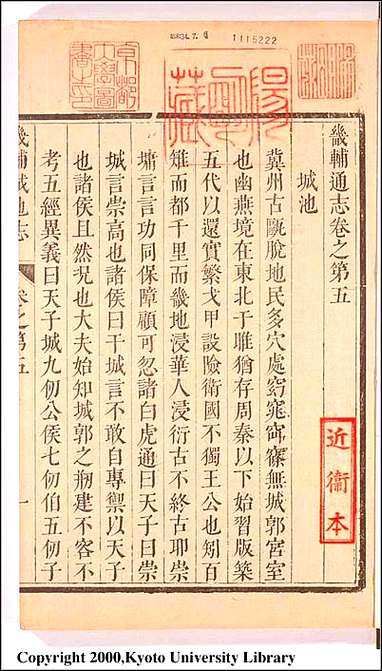 1115222
京都
大學圖
書之印
陽明藏
近衛本
畿輔通志卷之第五
城池
冀州古甌脫地民多穴處窈窕窬寮無城郭宮室
也幽燕境在東北于雎猶存周秦以下始習版築
五代以還實繁戈甲設險衛國不獨王公也矧百
雉而都千里而畿地浸華人浸衍古不終古耶崇
墉言言功同保障顧可忽諸白虎通曰天子曰崇
城言崇高也諸侯曰干城言不敢自專禦以天子
也諸侯且然況也大夫始知城郭之剏建不容不
考五經異義曰天子城九仞公侯七仞伯五仞子
畿輔城池志
卷之第五
一
Copyright 2000,Kyoto University Library